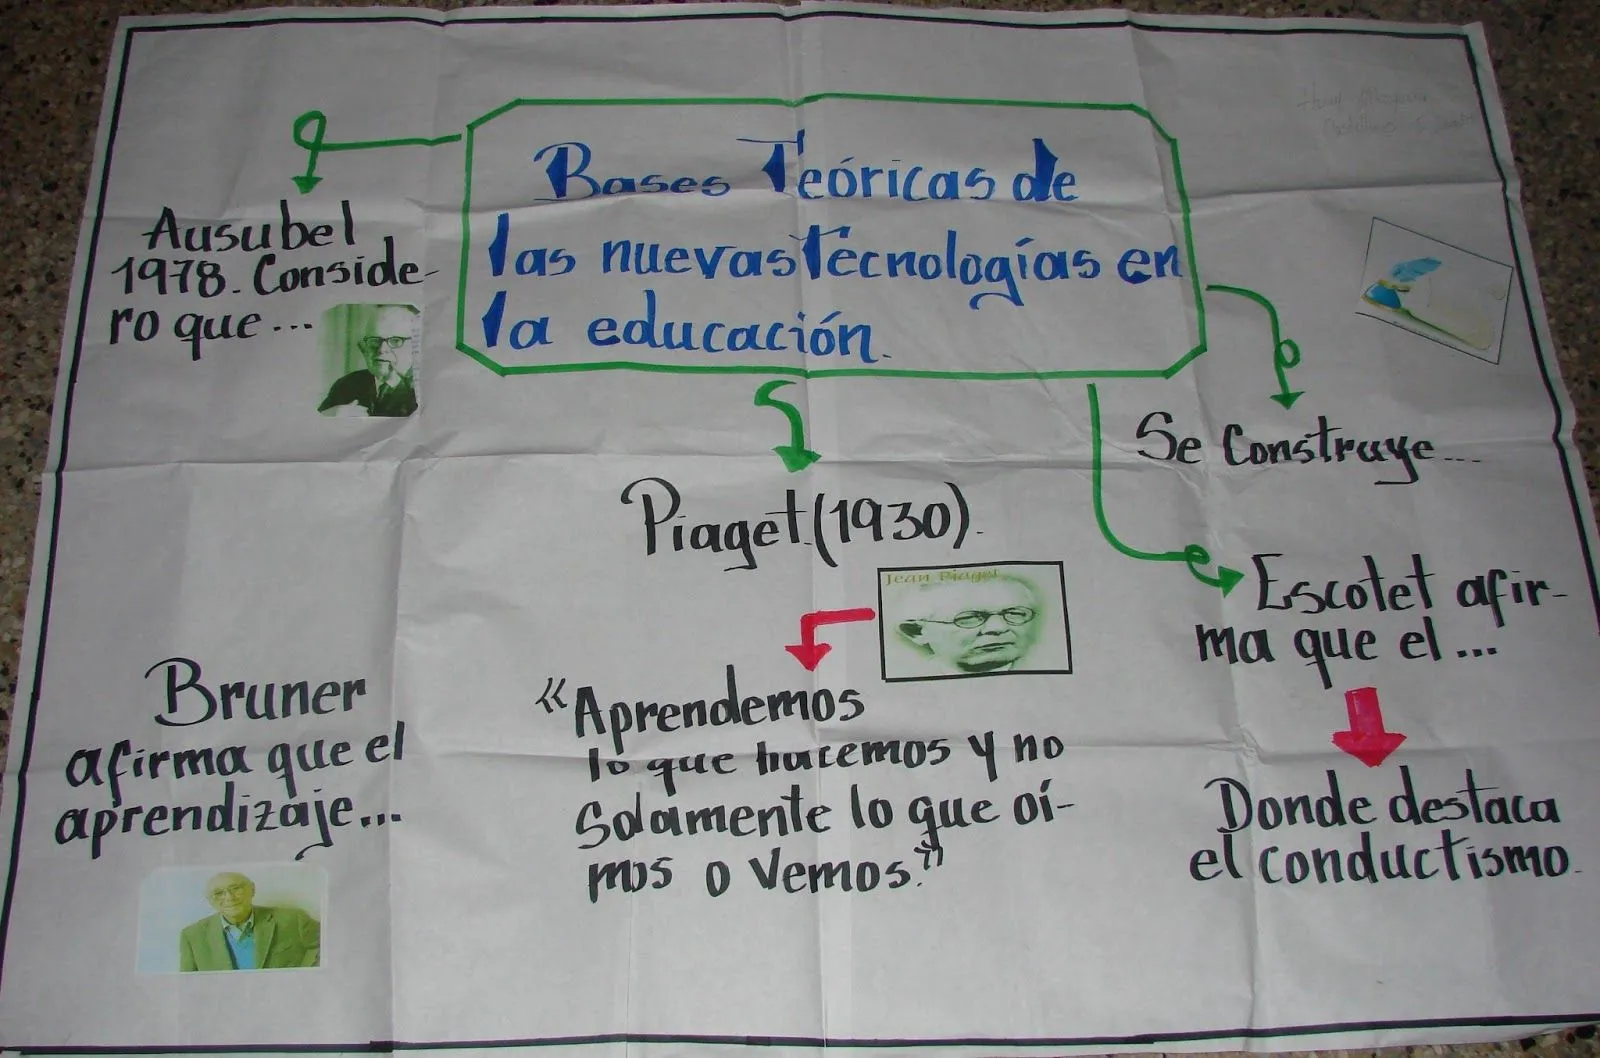 Bases Teóricas de
las nuevas Tecnologías en
la educación.
Ausubel
1978. Conside-
ro que...
Se Construye...
Piaget.(1930).
Jean Piaget
Escotet afir-
ma que el...
Bruner
afirma que el
aprendizaje...
"Aprendemos
lo que hacemos y no
Solamente lo que oí-
mos o vemos."
Donde destaca
el conductismo.